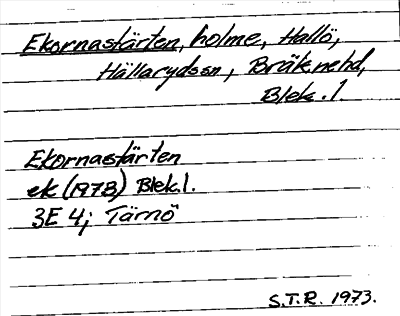 Ekornastärten, holme, Hallö,
Hällarydssn, Bräkne hd,
Blek. l.
Ekornastärten
ek (1973) Blek. l.
3E 4; Tärnö
S.T.R. 1973.